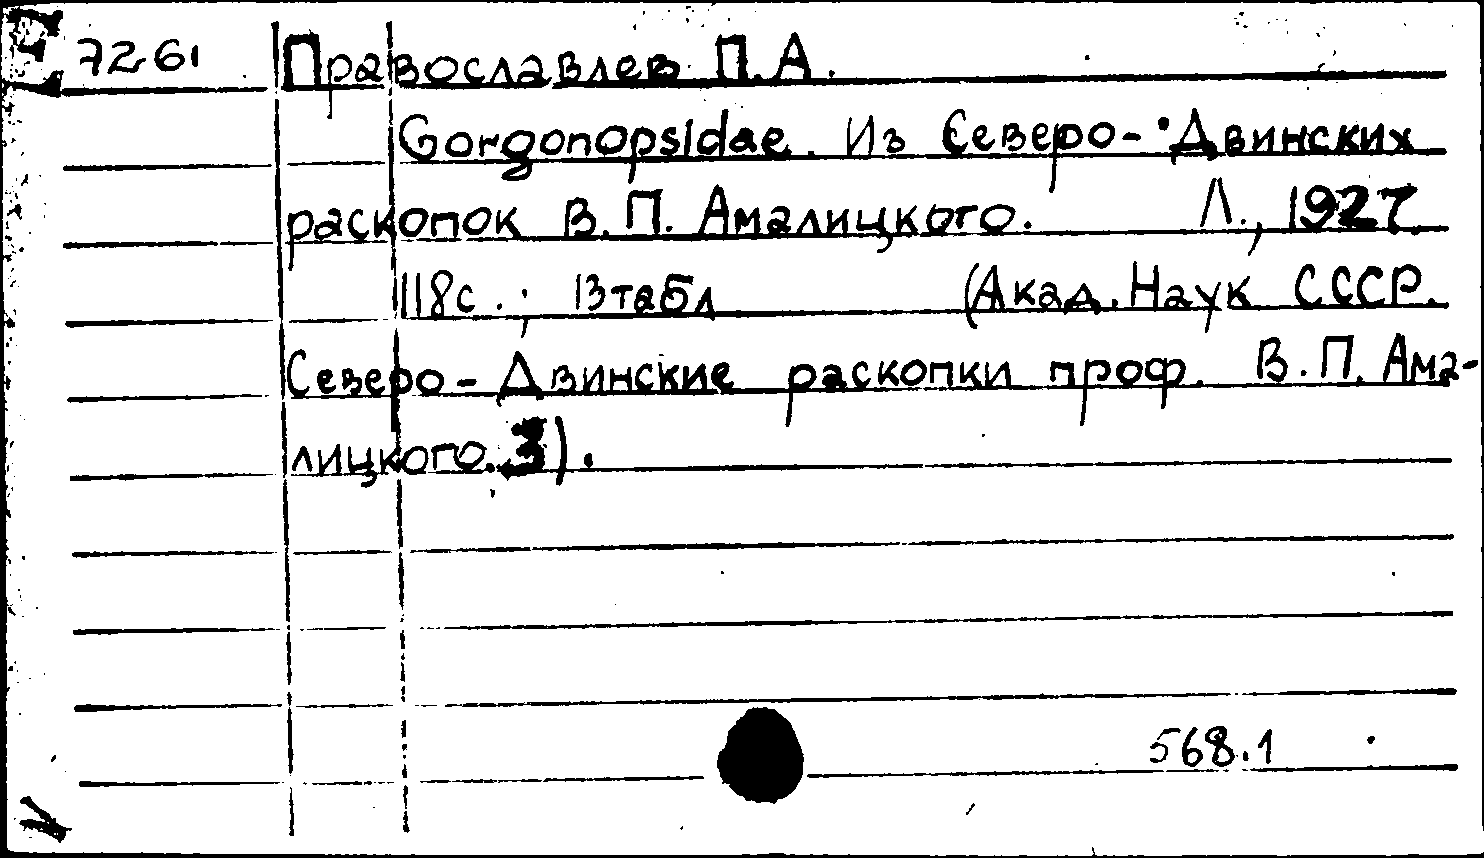 7261 Православлев П.А.
Gorgonopsidae. Из Северо-Двинских
раскопок В.П. Амалицкого. Л., 1927.
118с.; 13табл (Акад. Наук СССР.
Северо-Двинские раскопки проф. В.П. Ама-
лицкого. 3).
568.1